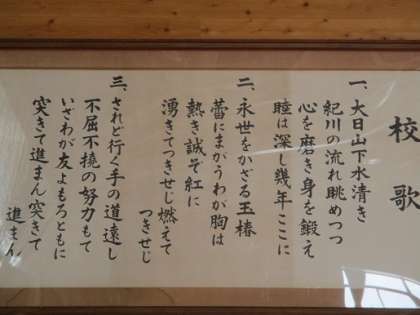 校歌
一、大日山下水清き
紀川の流れ眺めつつ
心を磨き身を鍛え
睦は深し幾年ここに
二、永世をかざる玉椿
蕾にまがうわが胸は
熱き誠ぞ紅に
湧きてつきせじ燃えて
つきせじ
三、されど行く手の道遠し
不屈不撓の努力もて
いざわが友よもろともに
突きて進まん突きて
進まん